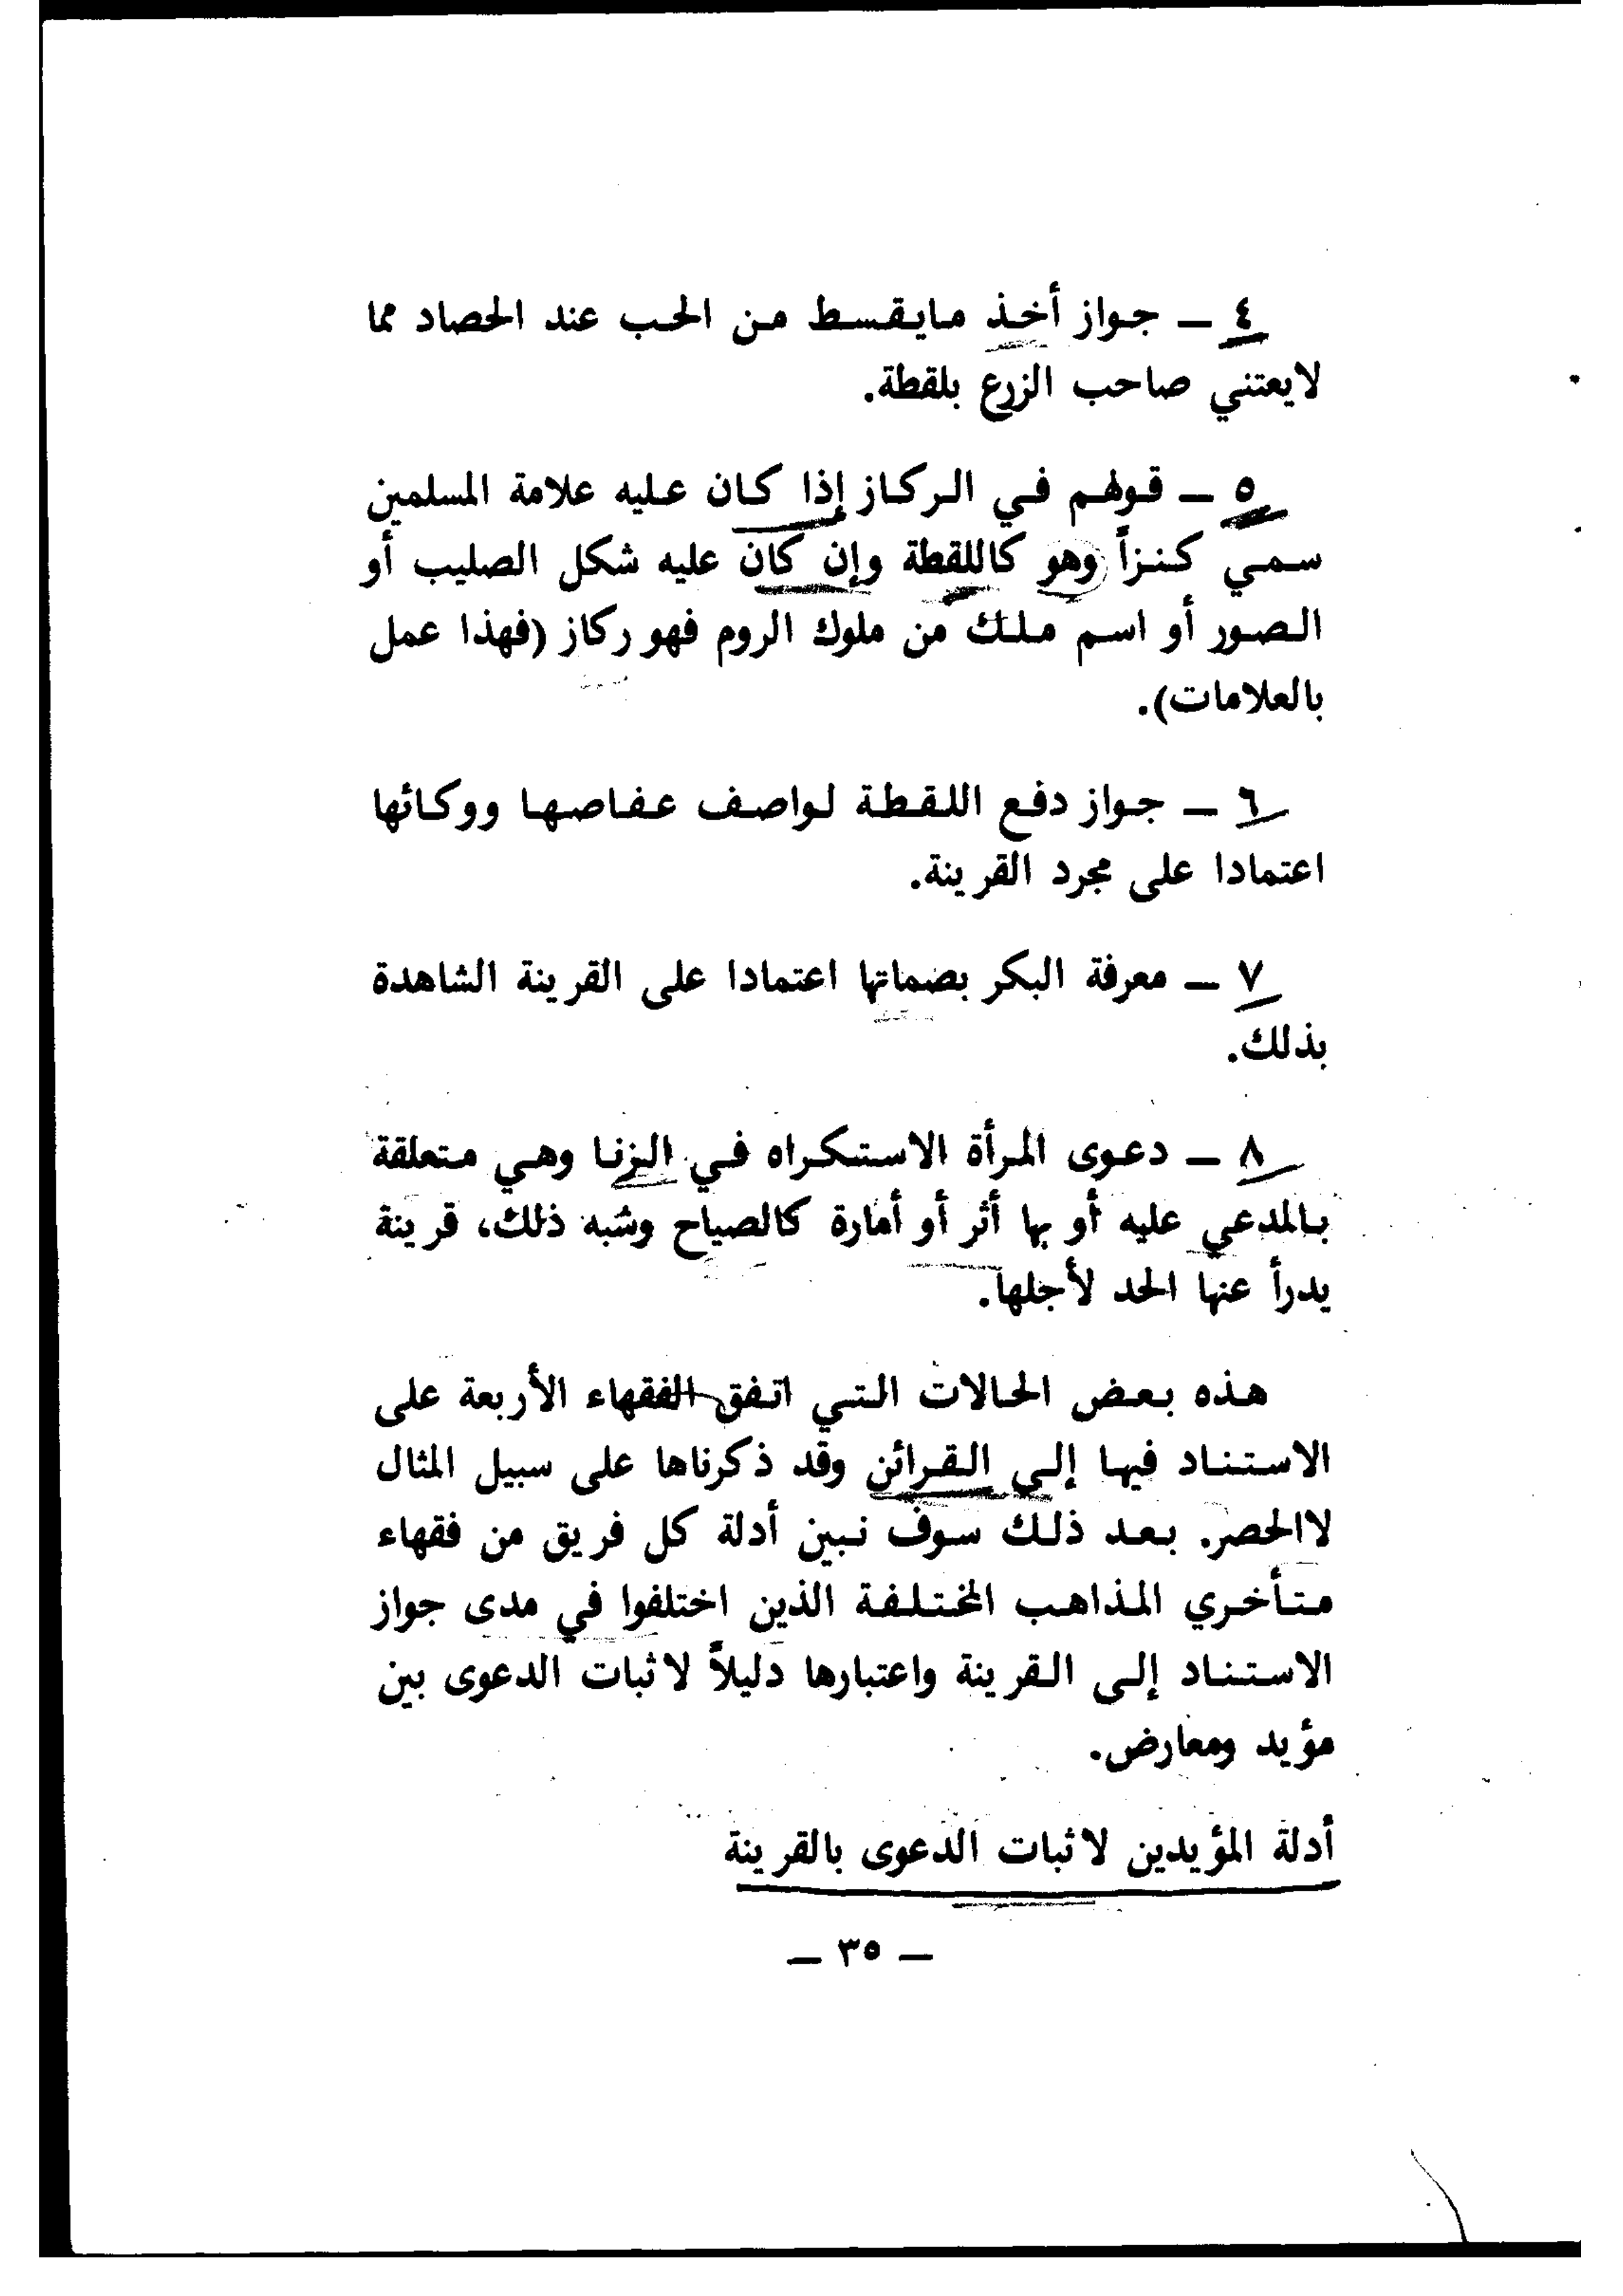 ٤ ــ جواز أخذ مايقسط من الحب عند الحصاد مما
لايعتني صاحب الزرع بلقطة.
٥ ــ قولهم في الركاز إذا كان عليه علامة المسلمين
سمي كنزاً وهو كاللقطة وإن كان عليه شكل الصليب أو
الصور أو اسم ملك من ملوك الروم فهو ركاز (فهذا عمل
بالعلامات).
٦ ــ جواز دفع اللقطة لواصف عفاصها ووكائها
اعتمادا على مجرد القرينة.
٧ ــ معرفة البكر بصماتها اعتمادا على القرينة الشاهدة
بذلك.
٨ ــ دعوى المرأة الاستكراه في الزنا وهي متعلقة
بالمدعي عليه أو بها أثر أو أمارة كالصياح وشبه ذلك، قرينة
يدرأ عنها الحد لأجلها.
هذه بعض الحالات التي اتفق الفقهاء الأربعة على
الاستناد فيها إلى القرائن وقد ذكرناها على سبيل المثال
لاالحصر. بعد ذلك سوف نبين أدلة كل فريق من فقهاء
متأخري المذاهب المختلفة الذين اختلفوا في مدى جواز
الاستناد إلى القرينة واعتبارها دليلاً لاثبات الدعوى بين
مؤيد ومعارض.
أدلة المؤيدين لاثبات الدعوى بالقرينة
ــ ٣٥ ــ